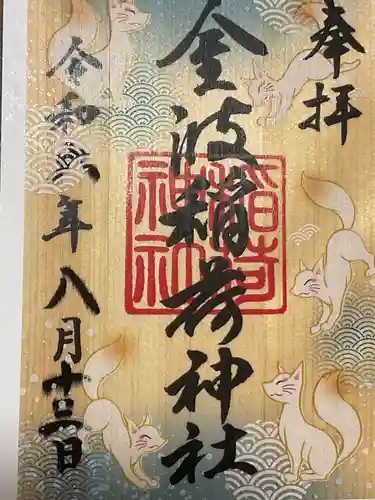 奉拝
金波稲荷神社
稲荷
神社
令和六年八月十三日